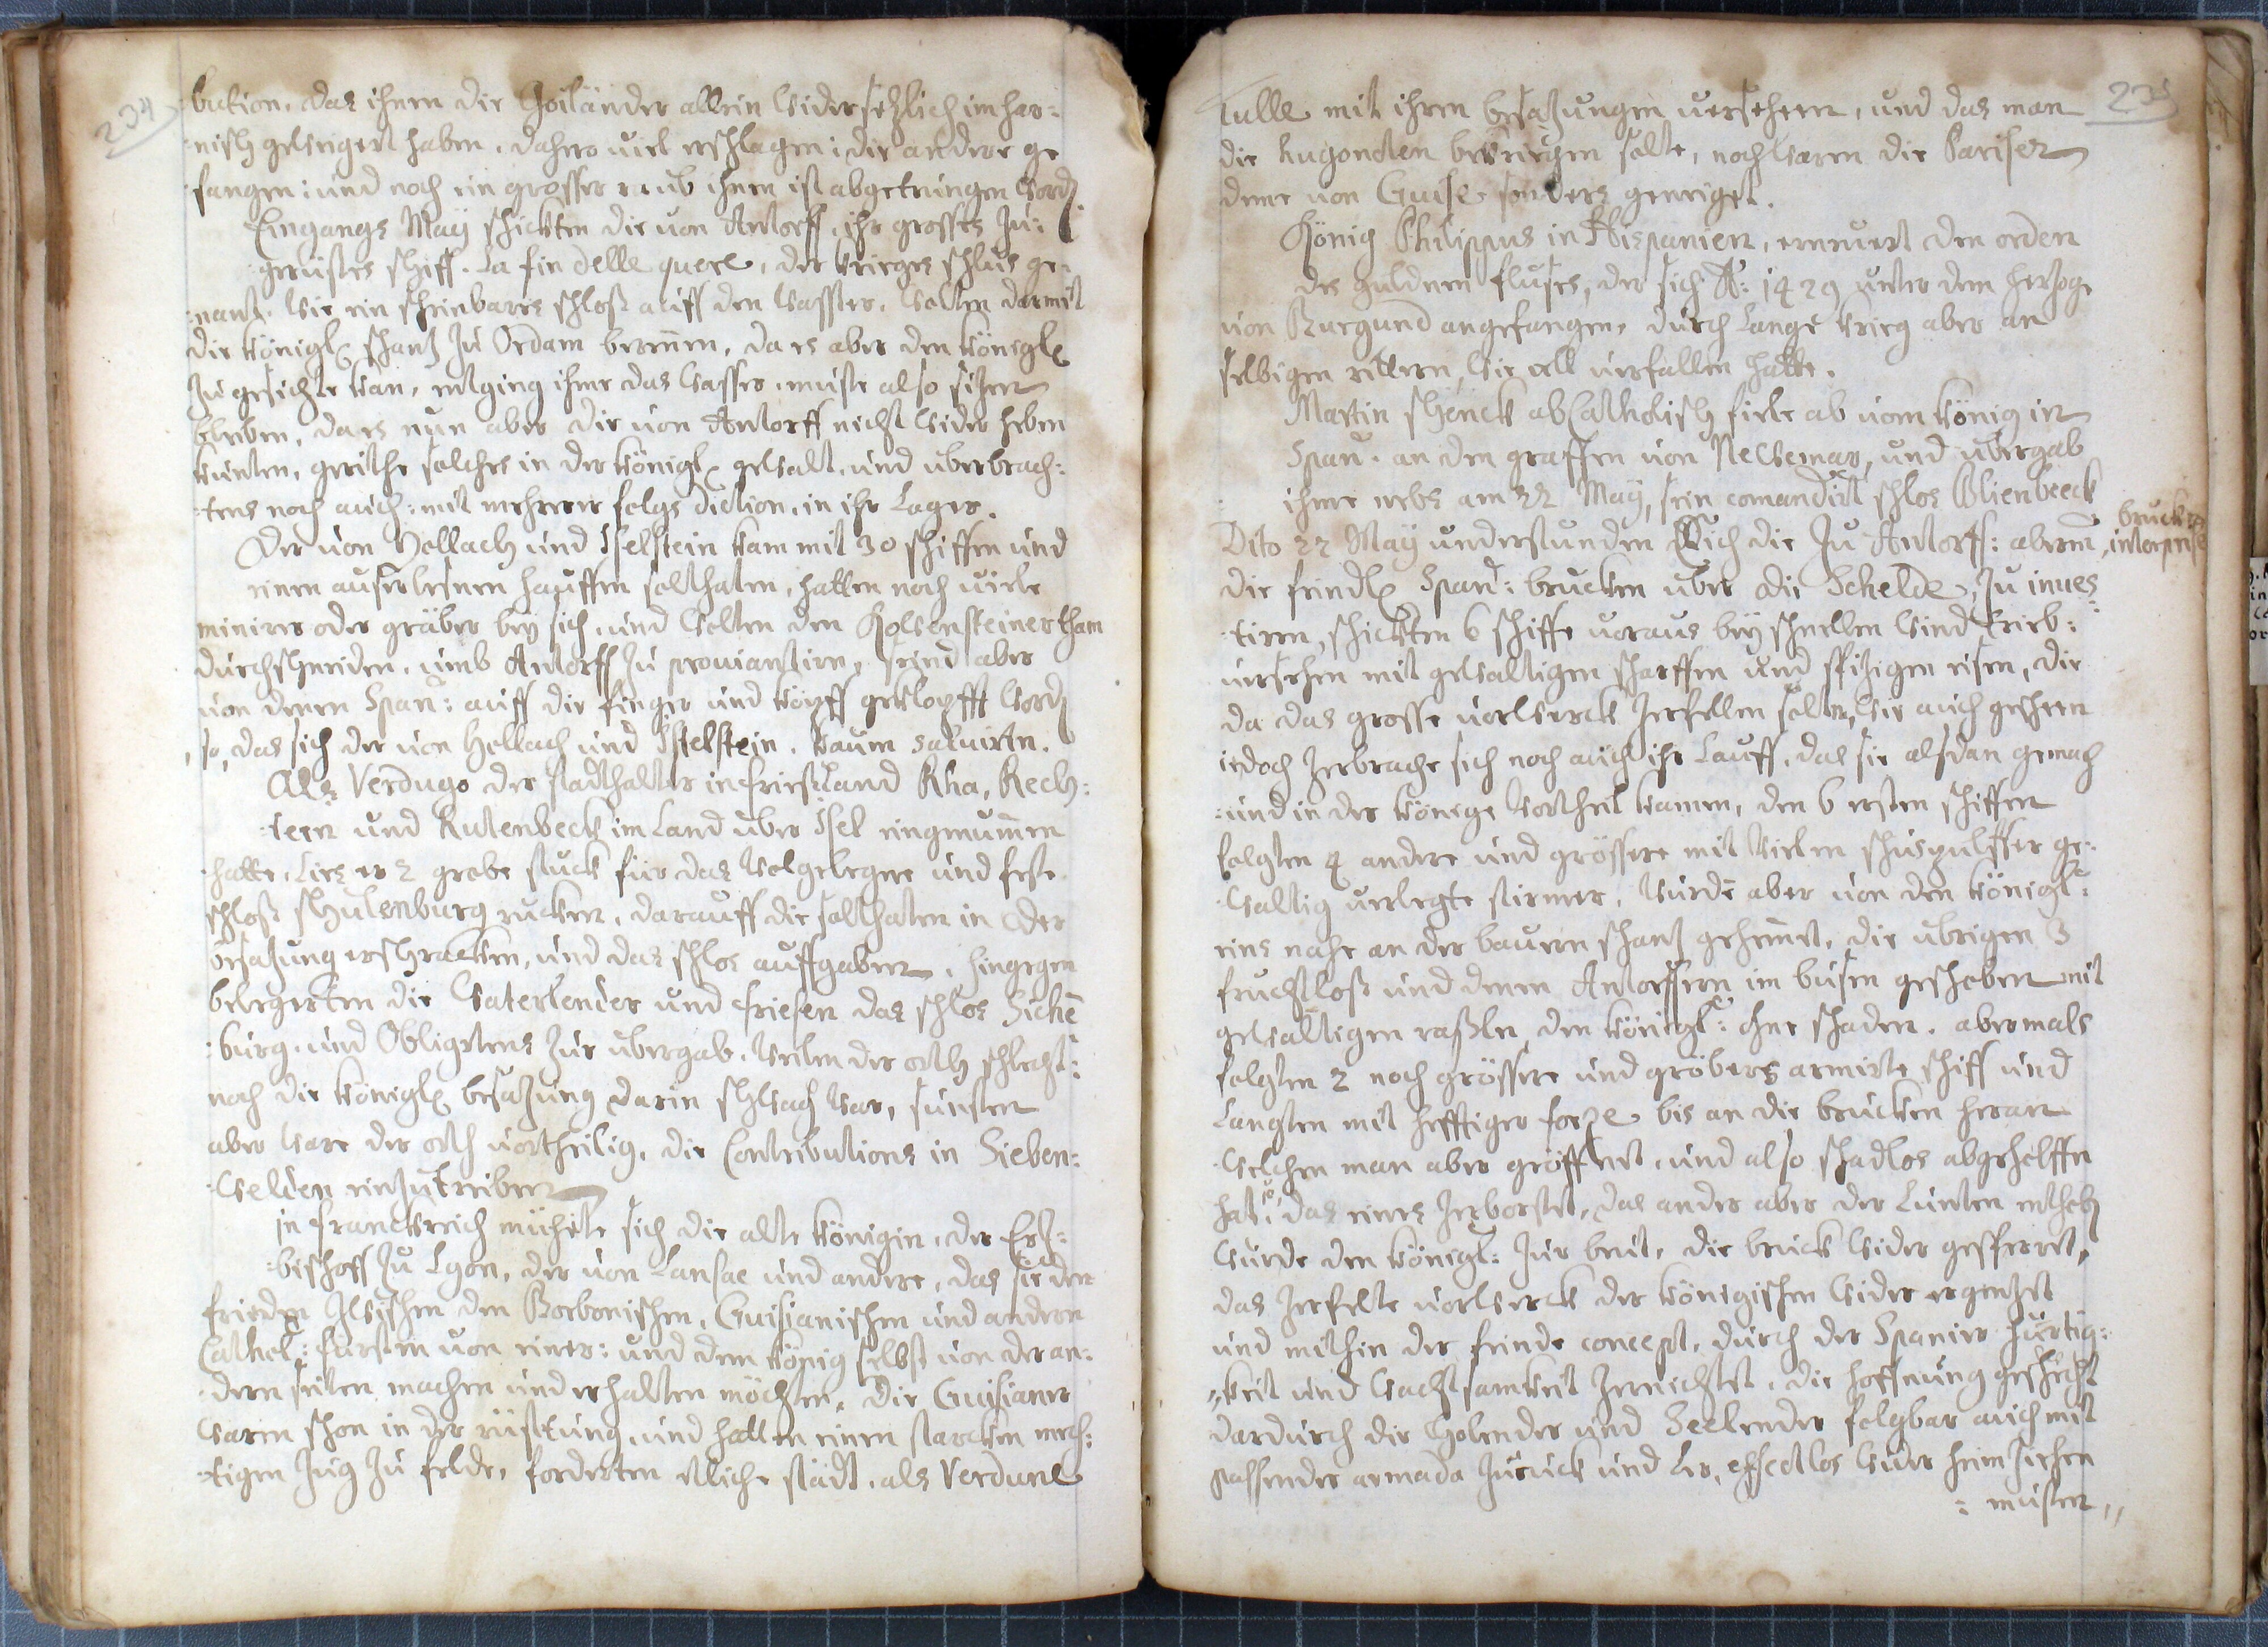 234
bution. das ihnen die Goiländer allein widersetzlich im har:
:nisch geweigert haben. dahero viel erschlagen: die andere ge
fangen: und noch ein grosser raub ihnen ist abgetrungen word.
Eingangs May schickten die von Antorff, ihr grosses zu:
:gerüstes schiff. La fin delle guere, der krieges schlus ge:
:nant. wie ein scheinbares schloß auff den wasser. wolten darmit
die königl. schantz zu Ordam berennen, da es aber den königl.
zu gesichte kam, entging ihme das wasser. muste also sitzen
bleiben, da es nun aber die von Antorff nicht wider heben
kunten, geriethe solches in der königl. gewalt, und uberbrach:
:tens noch auch: mit mehrerer folgs diction, in ihr Lager.
Der von Hollach und Iselstein kam mit 30 schiffen und
einen auserlesnen hauffen solthaten, hatten noch viele
minirer oder gräber bey sich, und wolten den Kolvensteiner tham
durchschneiden, umb Antorff zu proviantirn, seind aber
von denen Span: auff die finger und köpff geklopfft word.
so, das sich der von Hollach und Isselstein. kaum salvirtn.
Als Verdugo der stadthalter in Frießland Rha, Rech:
:tern und Rutenbeck im Land uber Isel eingenumen
hatte, Lies er 2 grobe stuck für das wolgelegne und feste
schloß schulenburg rucken, darauff die solthaten in der
besatzung erschracken, und das schlos auffgaben. hingegen
belegerten die Waterlender und friesen das schlos Sicken
:burg. und Obligirtens zur ubergab. weilen der orth schlecht:
noch die königl. besatzung darin schwach war, sunsten
aber ware der orth vortheilig, die Contributions in Sieben:
:welden einzutreiben
in franckreich mühete sich die alte königin, der Ertz:
:bischoff zu Lyon, der von Lansac und andere, das sie den
frieden zwischen den Borbonischen, Guisianischen und andern
Cathol: fürsten von einer: und dem könig selbst von der an:
:dern seiten machen und erhalten möchten. die Guisianer
waren schon in der rüstung, und hatten einen starcken mech:
:tigen zug zu felde, forderten etliche städt. als Verdune
235
Tulle mit ihren besatzungen versehen, und das man
die Hugonoten bekriegen solte, noch waren die Pariser
deme von Guise sonders geneiget.
König Philippus in Hispanien, erneuert den orden
des guldenen fluses, der sich Aº: 1429 unter dem herzoge
von Burgund angefangen, durch Lange krieg aber an
selbigen rittern, wie all verfallen hatte.
Martin schenck ab Catholisch fiele ab vom könig in
Span: an den graffen von Newemar, und ubergab
ihme nebs am 22 May, sein comandirt schlos Blienbeeck
Dito 22 May understunden sich die zu Antorff: aberm.
brucken
interprise
die feindl. Span: brucken uber die Schelde, zu inves
:tiren, schickten 6 schiffe voraus bey schnellen wind trieb:
versehen mit gewaltigen scharffen und spitzigen eisen, die
da das grosse vorwerck zerfellen solten, wie auch geschehen
iedoch zerbrache sich noch auch ihr Lauff, das sie alsdan gemach
:und in der könige vortheil kamen, den 6 ersten schiffen
folgten 4 andere und grössere mit vielen schuspulffer ge:
:waltig verlegte stirmer, wurde aber von den königl:
eins nahe an der bauern schantz gehemet, die ubrigen 3
fruchtloß und denen Antorffern im busen geschoben mit
gewaltigen raßlen, den königl: ohne schaden. abermals
folgten 2 noch grössere und gröbers armirte schiff und
Langten mit hefftiger forze bis an die brucken heran
welchen man aber geöffnet, und also schadlos abgeholffen
hat. das eines zerborstet, das ander aber der Lunten entheb
wurde den königl: zur beut, die bruck wider gesperret,
das zerfelte vorwerck der königischen wider ergentzt
und mithin der feinde concept, durch der Spanier hurtig:
:keit und wachtsamkeit zernichtet. die hoffnung geschecht
dardurch die Holender und Seelender folgbar auch mit
passender armada zuruck und Ler, effectlos wider heim ziehen
: musten,,